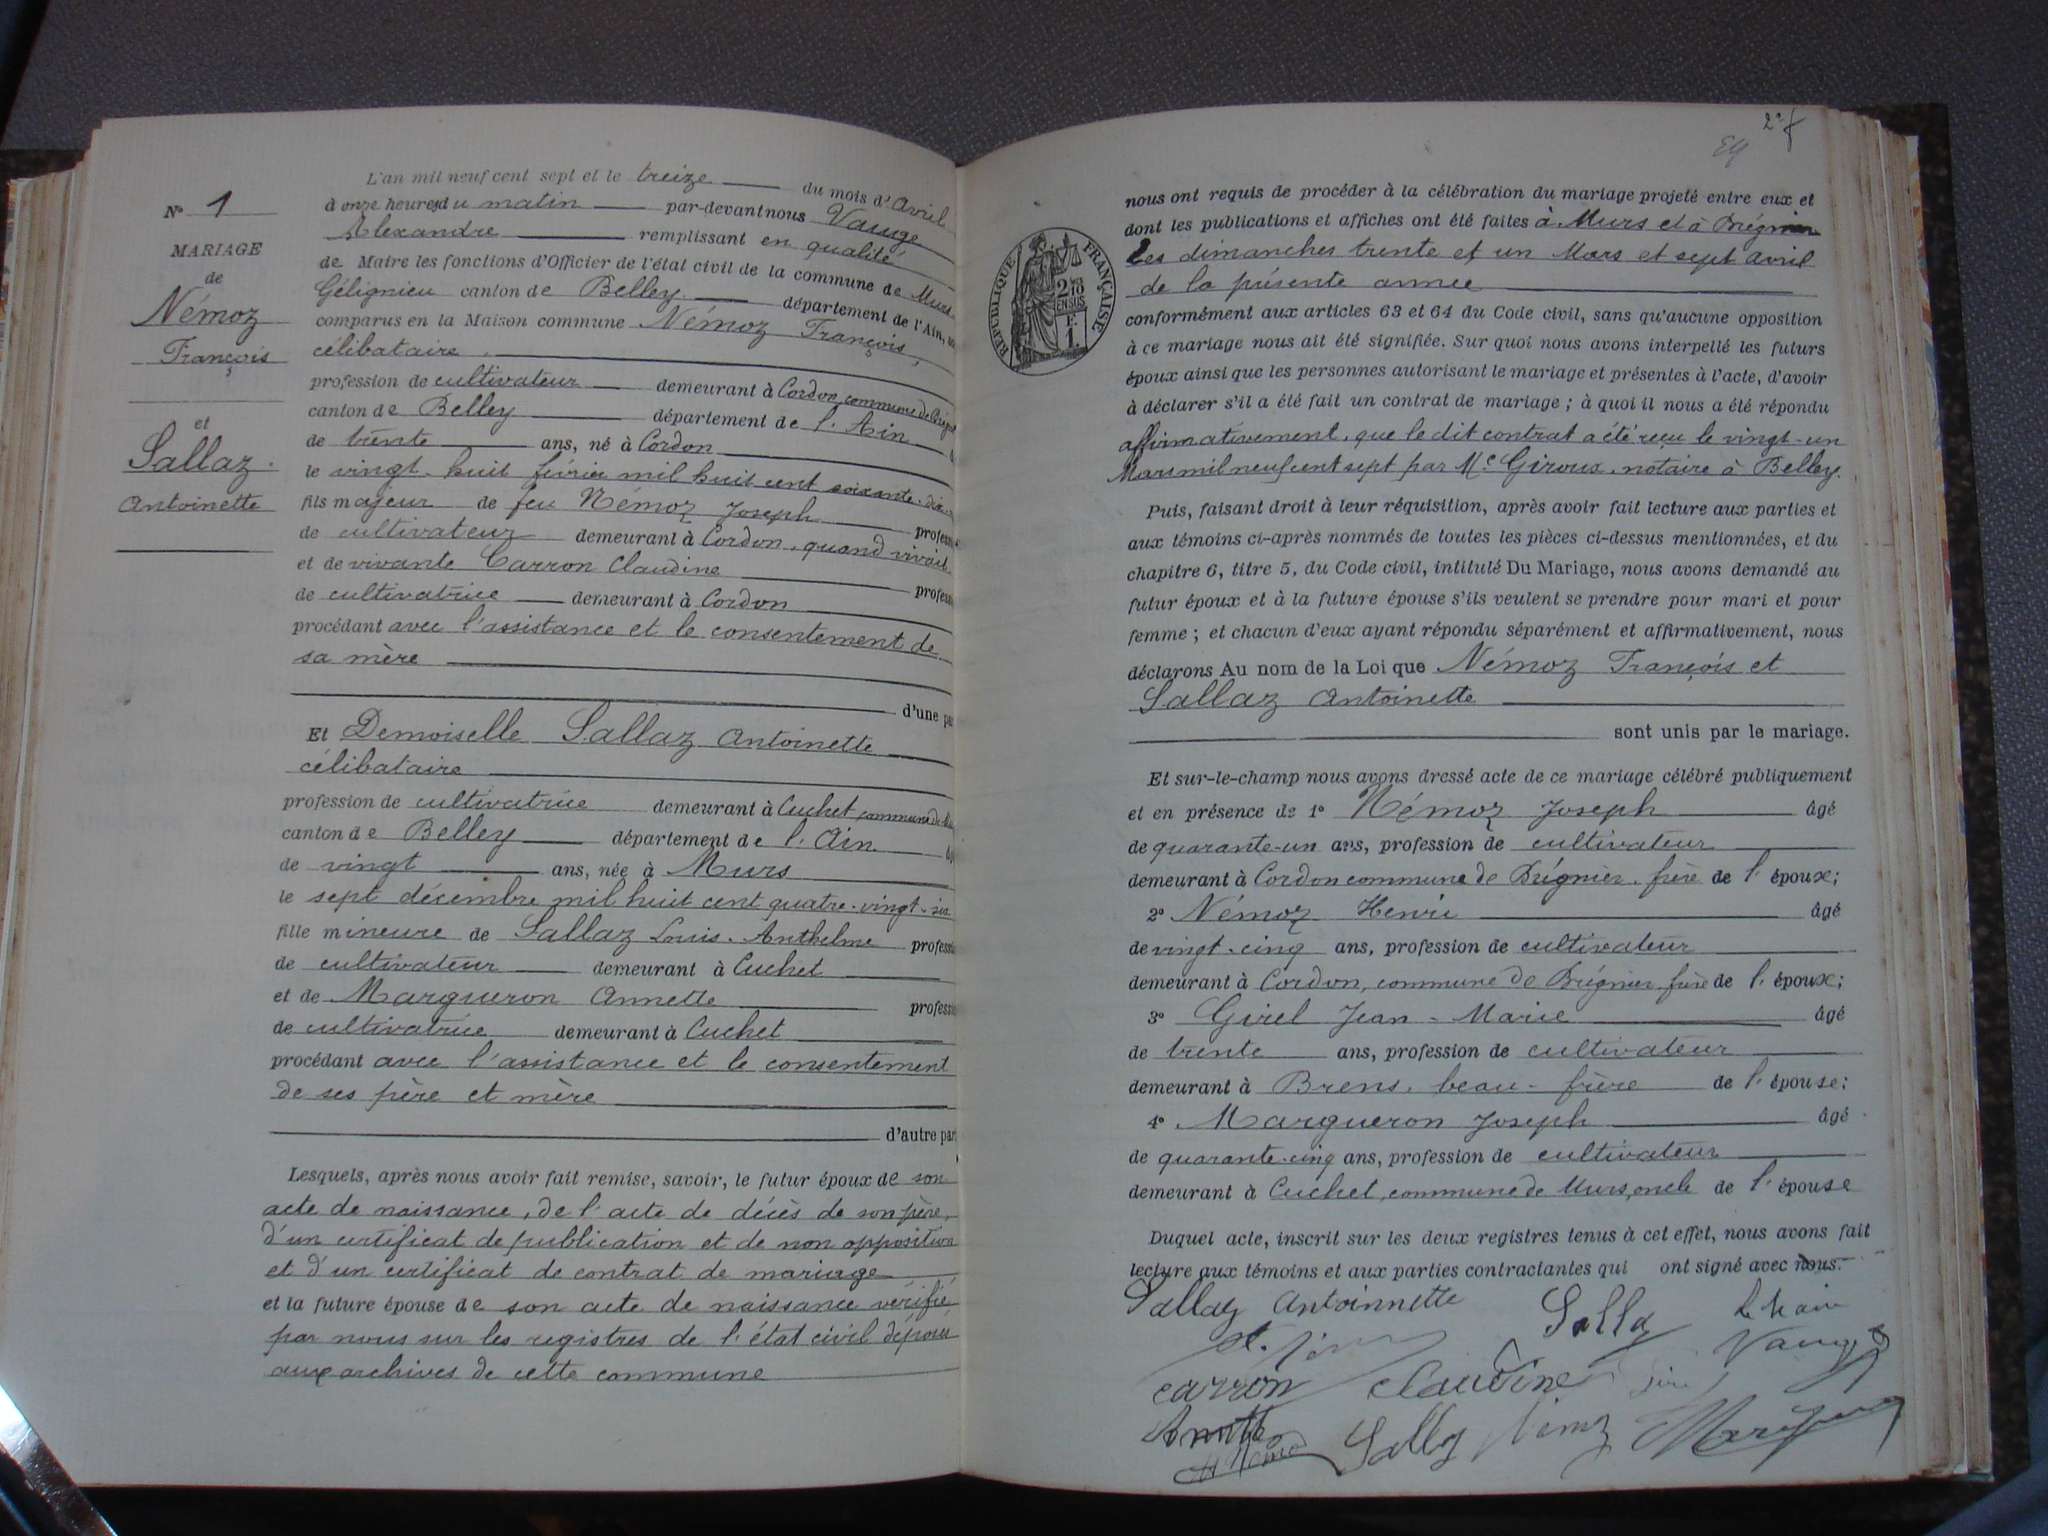 L'an mil neuf cent sept et le treize du mois d'Avril
à onze heures du matin par-devant nous Vauge
Alexandre remplissant en qualité
de Maire les fonctions d'Officier de l'état civil de la commune de Murs
Gélignieu canton de Belley département de l'Ain,
comparus en la Maison commune Némoz François,
célibataire
profession de cultivateur demeurant à Cordon, commune de
canton de Belley département de l'Ain
de trente ans, né à Cordon
le vingt-huit février mil huit cent soixante-dix-
fils majeur de feu Némoz Joseph
de cultivateur demeurant à Cordon, quand vivait
et de vivante Carron Claudine
de cultivatrice demeurant à Cordon
procédant avec l'assistance et le consentement de
sa mère
d'une
Et Demoiselle Sallaz Antoinette
célibataire
profession de cultivatrice demeurant à Cuchet commune de
canton de Belley département de l'Ain
de vingt ans, née à Murs
le sept décembre mil huit cent quatre-vingt-six
fille mineure de Sallaz Louis-Anthelme
de cultivateur demeurant à Cuchet
et de Margueron Annette
de cultivatrice demeurant à Cuchet
procédant avec l'assistance et le consentement
de ses père et mère
d'autre
Lesquels, après nous avoir fait remise, savoir, le futur époux de son
acte de naissance, de l'acte de décès de son père,
d'un certificat de publication et de non opposition
et d'un certificat de contrat de mariage
et la future épouse de son acte de naissance vérifié
par nous sur les registres de l'état civil déposés
aux archives de cette commune
N° 1
MARIAGE
de
Némoz
François
et
Sallaz
Antoinette
2e
nous ont requis de procéder à la célébration du mariage projeté entre eux et
dont les publications et affiches ont été faites à Murs et à Brégnier
Les dimanches trente et un Mars et sept avril
de la présente année
conformément aux articles 63 et 64 du Code civil, sans qu'aucune opposition
à ce mariage nous ait été signifiée. Sur quoi nous avons interpellé les futurs
époux ainsi que les personnes autorisant le mariage et présentes à l'acte, d'avoir
à déclarer s'il a été fait un contrat de mariage ; à quoi il nous a été répondu
affirmativement, que le dit contrat a été reçu le vingt-un
Mars mil neuf cent sept par Me Giroux, notaire à Belley.
Puis, faisant droit à leur réquisition, après avoir fait lecture aux parties et
aux témoins ci-après nommés de toutes les pièces ci-dessus mentionnées, et du
chapitre 6, titre 5, du Code civil, intitulé Du Mariage, nous avons demandé au
futur époux et à la future épouse s'ils veulent se prendre pour mari et pour
femme ; et chacun d'eux ayant répondu séparément et affirmativement, nous
déclarons Au nom de la Loi que Némoz François et
Sallaz Antoinette
sont unis par le mariage.
Et sur-le-champ nous avons dressé acte de ce mariage célébré publiquement
et en présence de 1° Némoz Joseph âgé
de quarante-un ans, profession de cultivateur
demeurant à Cordon commune de Brégnier, frère de l'époux;
2° Némoz Henri âgé
de vingt-cinq ans, profession de cultivateur
demeurant à Cordon, commune de Brégnier frère de l'époux;
3° Girel Jean-Marie âgé
de trente ans, profession de cultivateur
demeurant à Brens, beau-frère de l'épouse;
4° Margueron Joseph âgé
de quarante-cinq ans, profession de cultivateur
demeurant à Cuchet, commune de Murs, oncle de l'épouse
Duquel acte, inscrit sur les deux registres tenus à cet effet, nous avons fait
lecture aux témoins et aux parties contractantes qui ont signé avec nous.
Sallaz Antoinnette Le Maire
Vauge
carron claudine
RÉPUBLIQUE FRANÇAISE